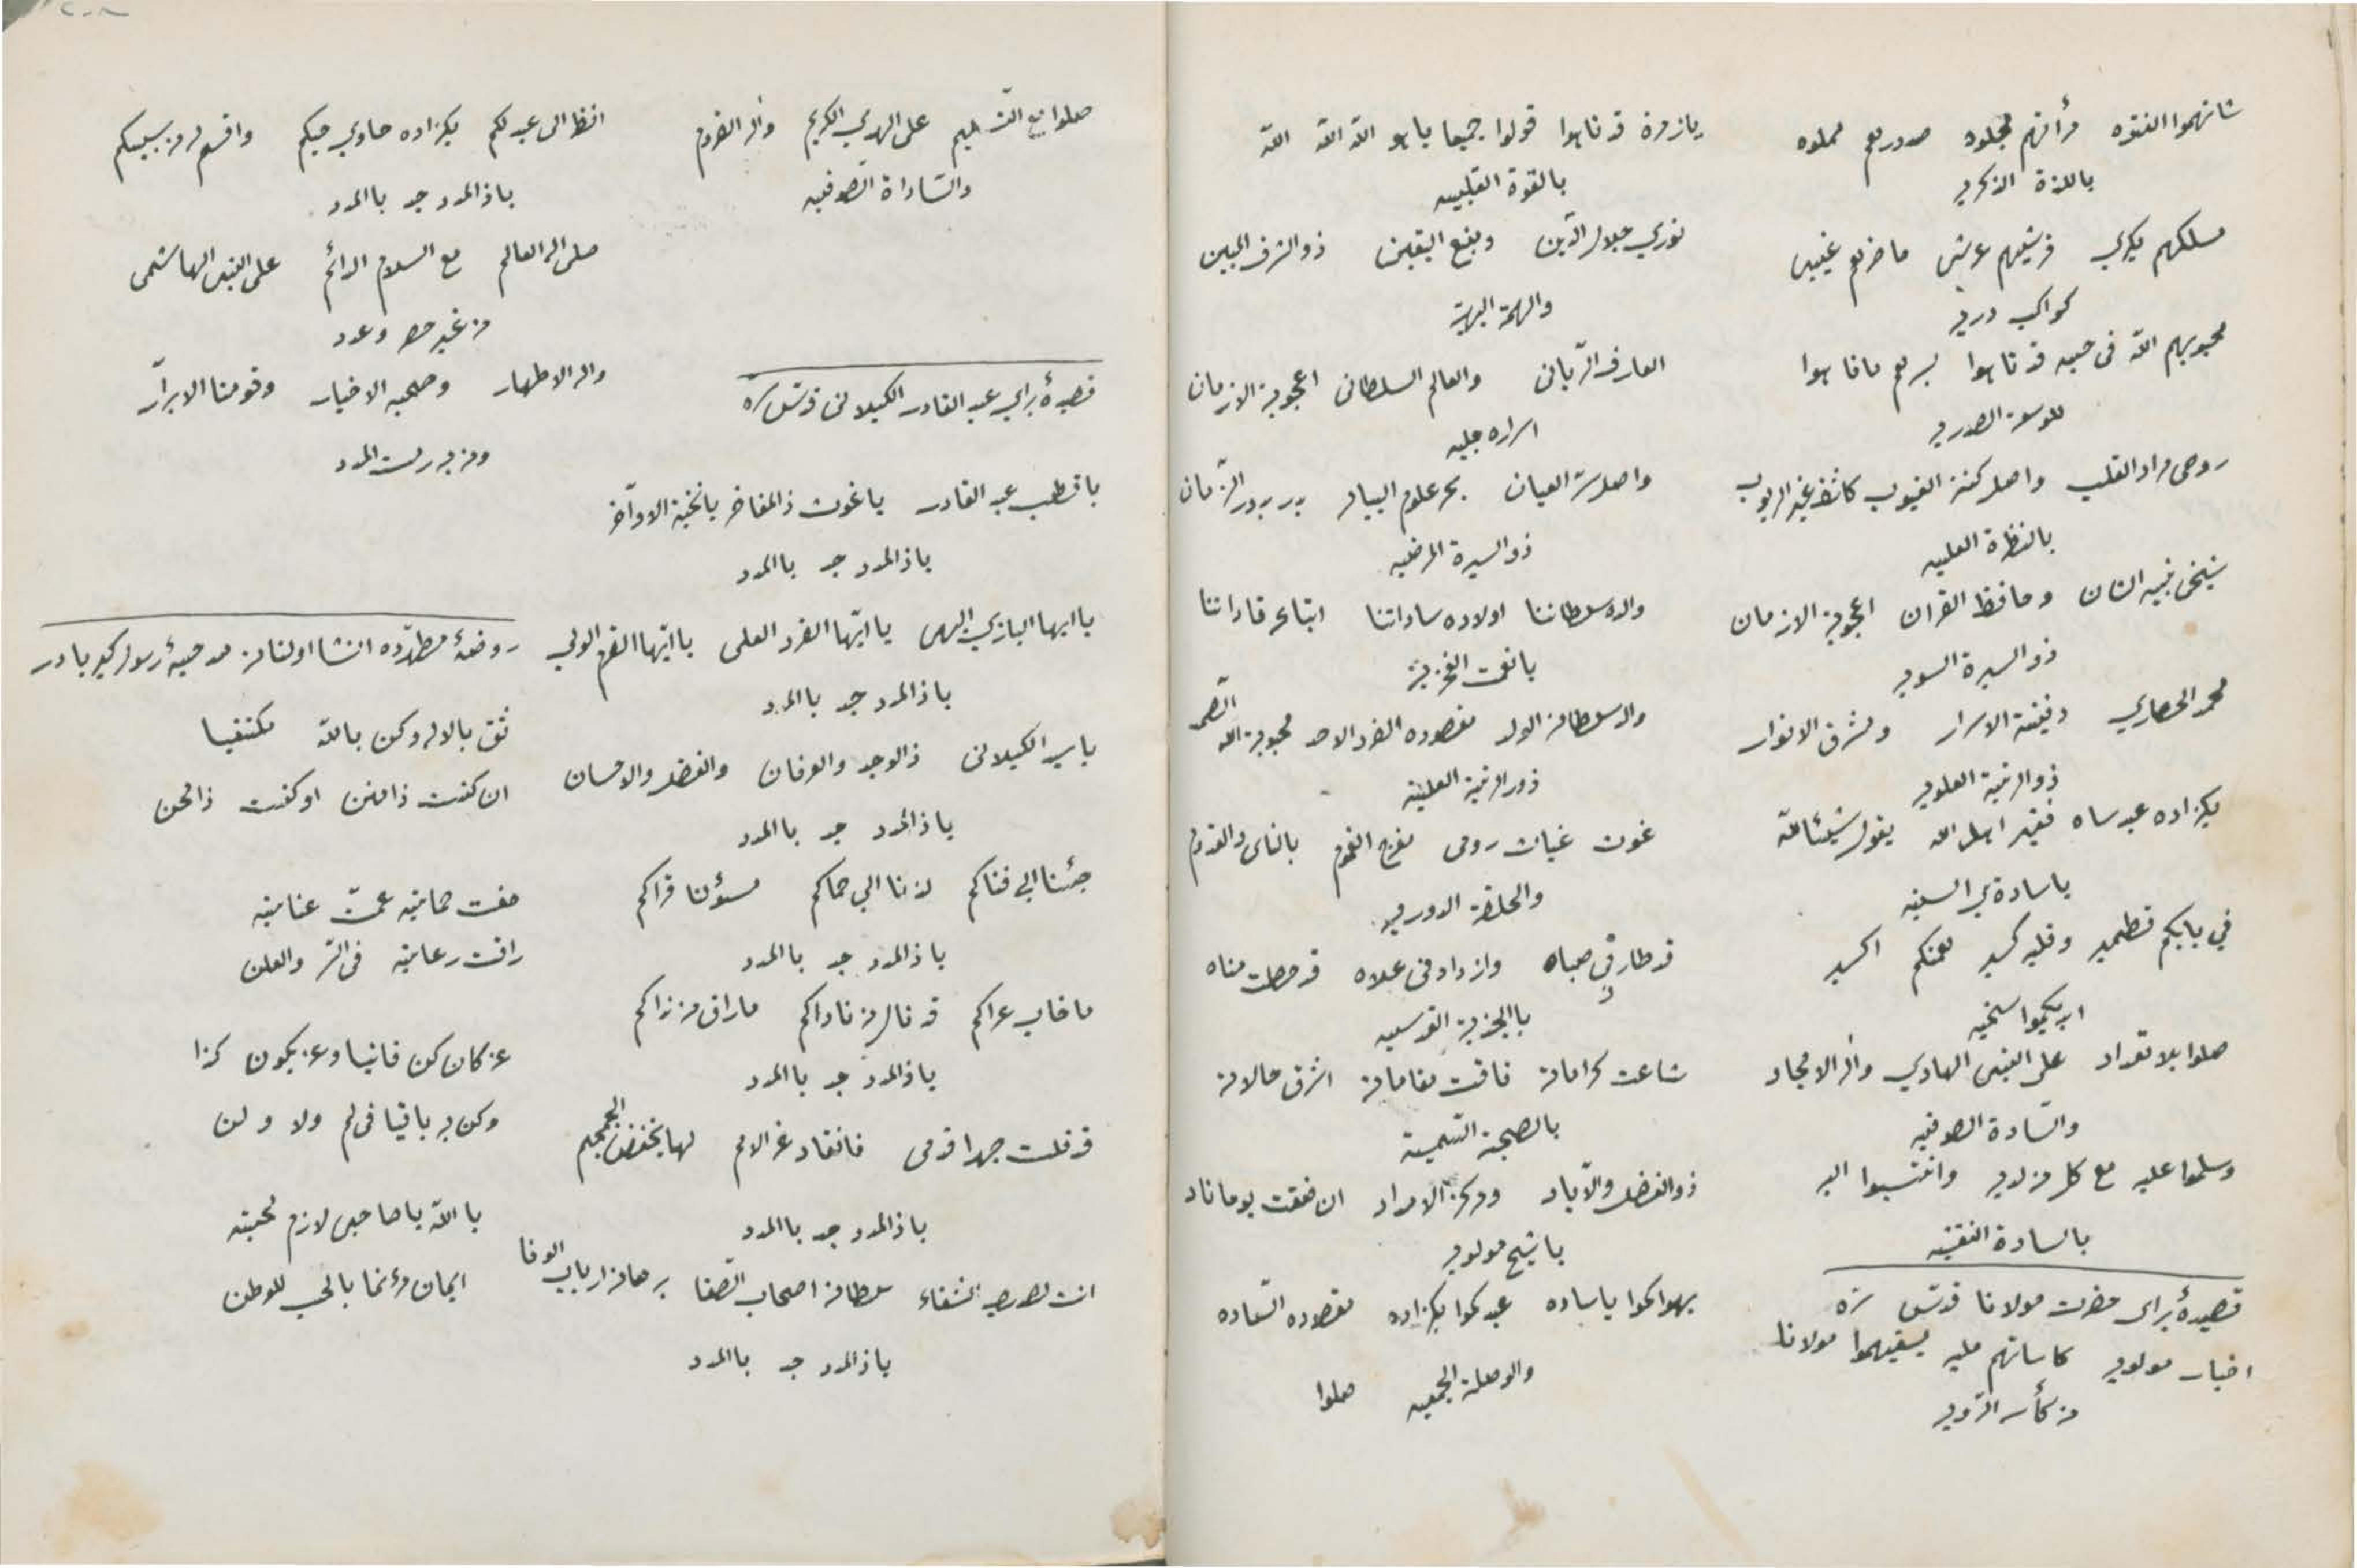 شانهموا النقوه مرأتهم مجلوه صدورهم مملوه
باللذة الذكريه
مسلكهم بكري فرشيهم عرشي حاضرهم غيبي
كواكب دريه
محبوبهم الله في حبه قد تاهوا بسرهم ما فاهوا
للوسعة الصدريه
روحي مراد القلب واصل كنز الغيوب كاشف غير الريوب
بالنظرة العليه
شيخي نبيه الشان وحافظ القران اعجوبة الازمان
ذو السيرة السويه
محمد الحصاري دفينة الاسرار ومشرق الانوار
ذو الرتبة العلويه
بكزاده عبد ساه فقير اهل الله يقول شيئا لله
يا سادتي السنيه
في بابكم قطمير وقلبه كسير لعنكم اكسير
ايديكموا سخيه
صلوا بلا تعداد على النبي الهادي وآله الامجاد
والسادة الصوفيه
وسلموا عليه مع كل من لديه وانتسبوا اليه
بالسادة النقيه
قصيدۀ براى حضرت مولانا قدس سره
اخيار مولويه كاساتهم مليه يسقيهموا مولانا
من كأسه الرويه
يا زمرة قد تاهوا قولوا جميعا ياهو الله الله الله
بالقوة القلبيه
نوري جلال الدين ومنبع اليقين ذو الشرف المبين
والهمة البهية
العارف الرباني والعالم السلطاني اعجوبة الازمان
اسراره جليه
واصل سر العيان بحر علوم البيان بدر بدور الزمان
ذو السيرة المرضيه
والده سلطاننا اولاده ساداتنا ابناءه قاداتنا
والد سلطان الولد مقصوده الفرد الاحد محبوبه الله الصمد
ذو الرتبة العلية
غوث غياث رومي مفرج الغموم بالناي والقدوم
والحلقة الدوريه
قد طار في صباه وازداد في علاه قد حصلت مناه
بالجذبة القدسيه
شاعت كراماته فاقت مقاماته اشرق حالاته
بالصحبة الشمسية
ذو الفضل والآياد ومركز الامداد ان ضقت يوما ناد
يا شيخ مولويه
يهواكموا يا ساده عبدكموا بكزاده مقصوده السعاده
والوصلة الجمعيه صلوا
صلوا مع التسليم على النبي الكريم وآله القروم
والسادات الصوفيه
قصيدۀ براى عبد القادر الكيلانى قدس سره
يا قطب عبد القادر يا غوث ذا المفاخر يا نخبة الاواخر
يا ذا المدد جد بالمدد
يا ايها البازي البهي يا ايها الفرد العلي يا ايها القرم الولي
يا ذا المدد جد بالمدد
يا سيد الكيلاني ذا الوجد والعرفان والفضل والاحسان
يا ذا المدد جد بالمدد
جئنا الى فناكم لذنا الى حماكم مسؤلنا قراكم
يا ذا المدد جد بالمدد
ما خاب عراكم قد نال من ناداكم ما راق من نداكم
يا ذا المدد جد بالمدد
قد قلت جهرا قدمي فانقاد غر الامم لها بخفض الجمجم
يا ذا المدد جد بالمدد
انت لصدري الشفاء سلطان اصحاب الصفا برهان ارباب الوفا
يا ذا المدد جد بالمدد
انظر الى عبد لكم بكزاده حاوي حبكم واقسم له من سيبكم
يا ذا المدد جد بالمدد
صلى اله العالم مع السلام الدائم على النبي الهاشمى
من غير حصر وعدد
واله الاطهار وصحبه الاخيار وقومنا الابرار
ومن به رمت المدد
روضۀ مطهرده انشا اولنان مدحيۀ رسول كبريادر
ثق بالاله وكن بالله مكتفيا
ان كنت ذا منن او كنت ذا محن
حفت حمايته عمت عنايته
راقت رعايته في السر والعلن
عن كان كن فانيا وعن يكون كذا
وكن به باقيا في لم ولا ولن
بالله يا صاحبي لازم محبته
ايمان مؤتما بالحب للوطن